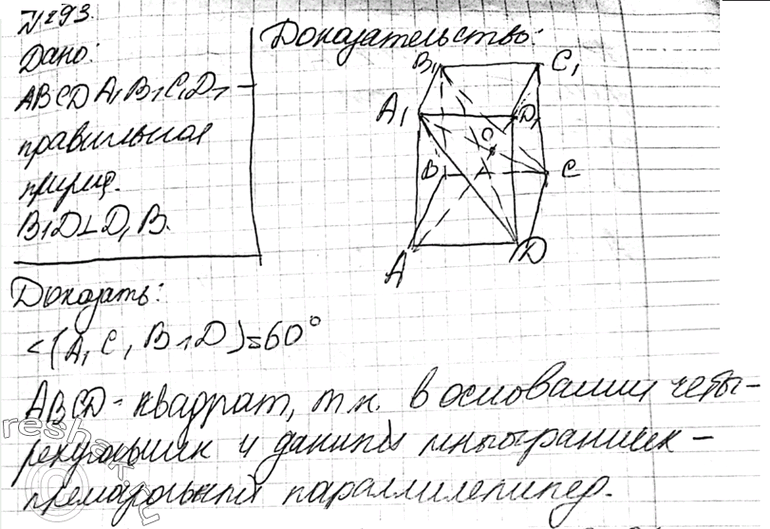 №293.
Дано:
ABCDA₁B₁C₁D₁ –
правильная
призма.
B₁D⊥D₁B.
Доказательство:
B₁ C₁
A₁ D₁
O
B C
A D
Доказать:
<(A₁C, B₁D)=60°
ABCD - квадрат, т.к. в основании четы-
рехугольник и данный многогранник –
параллелепипед.